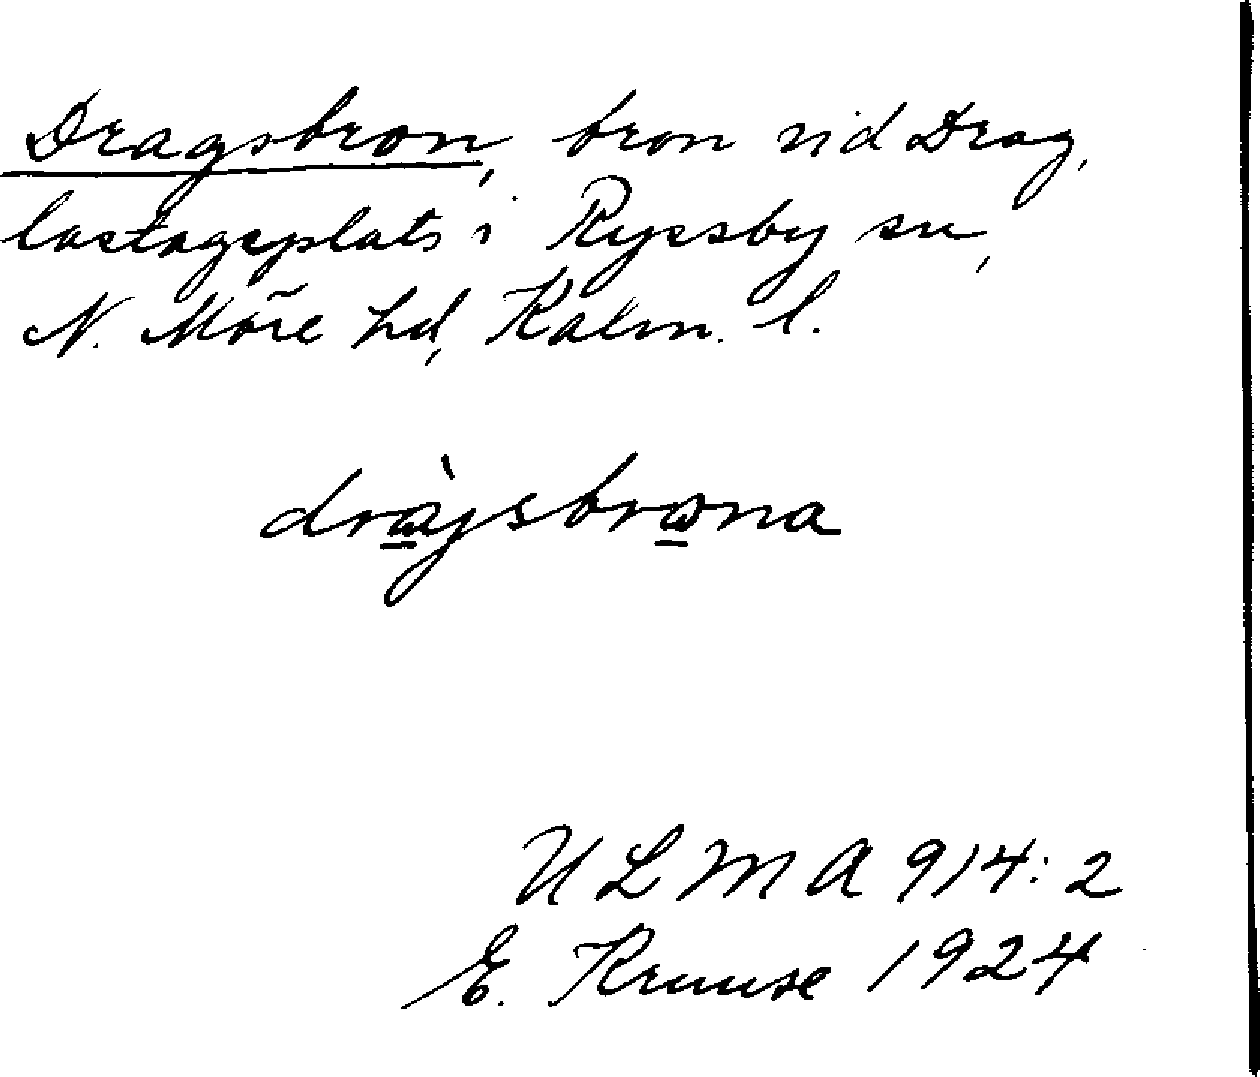 Dragsbron, bron vid Drag,
lastageplats i Ryssby sn,
N. Möre hd, Kalm. l.
dràgsbrona
ULMA 914:2
E. Kruuse 1924